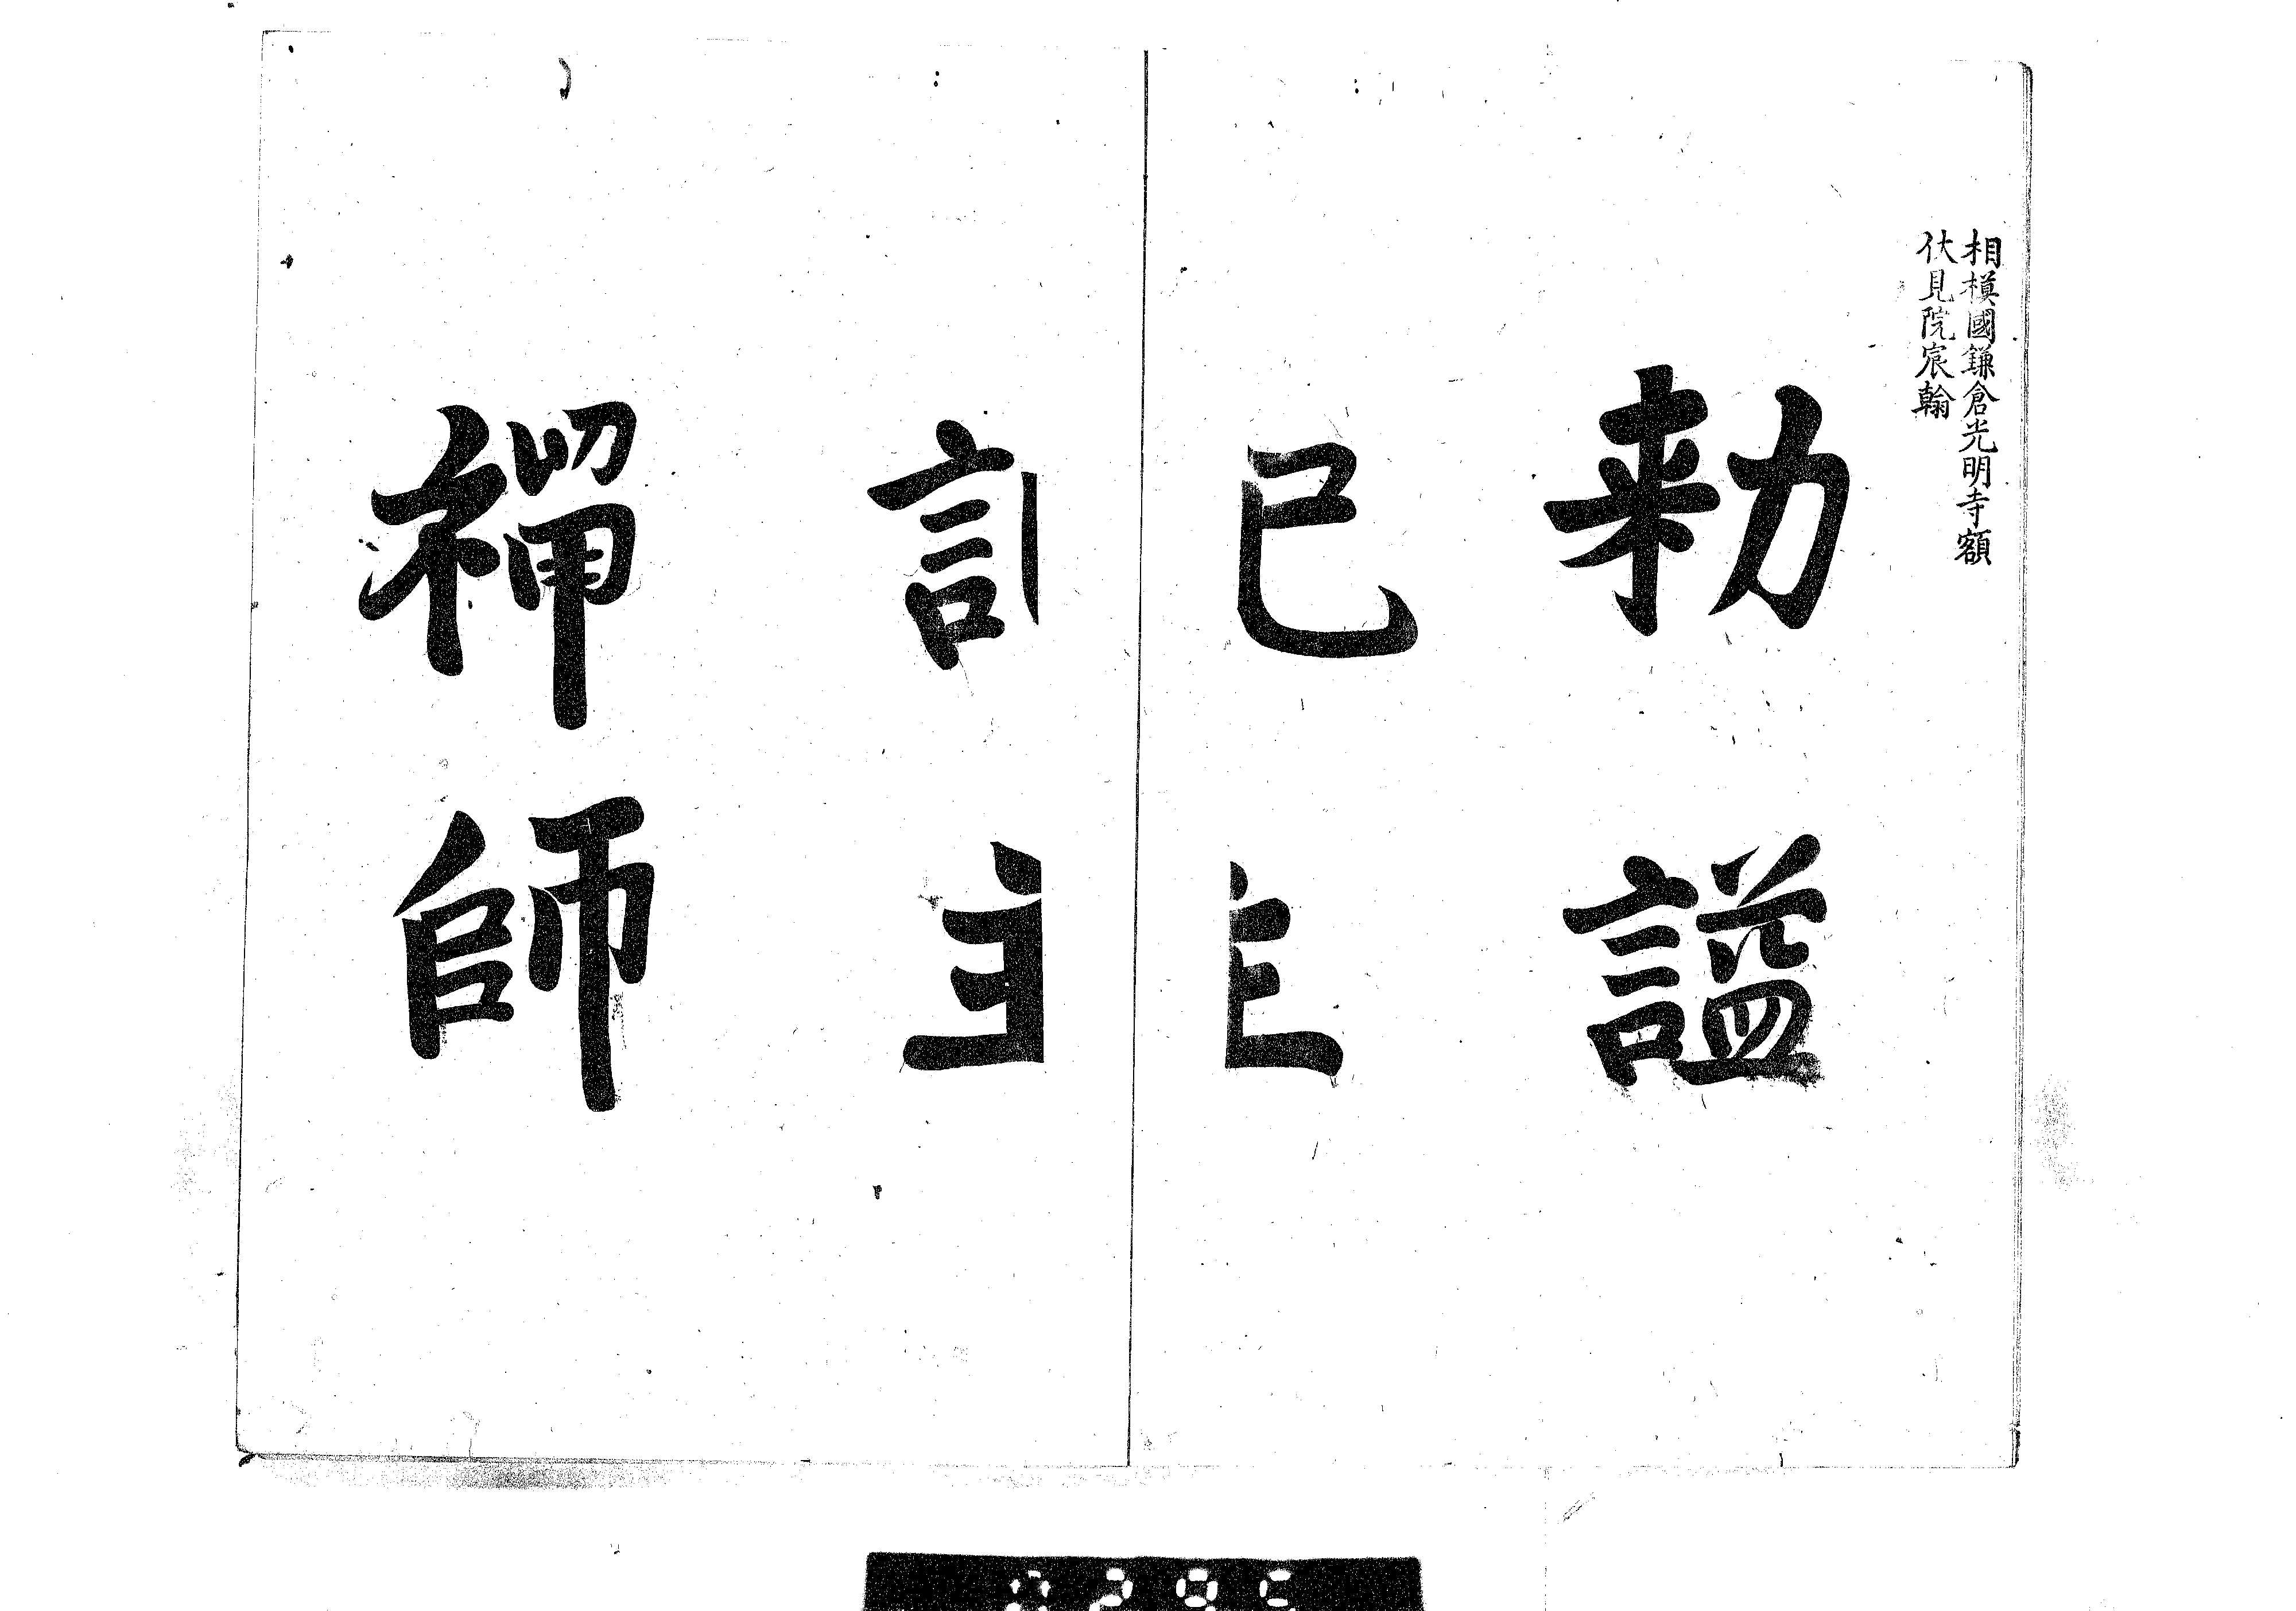 相模國鎌倉光明寺額
伏見院宸翰
勑諡
記主
禪師